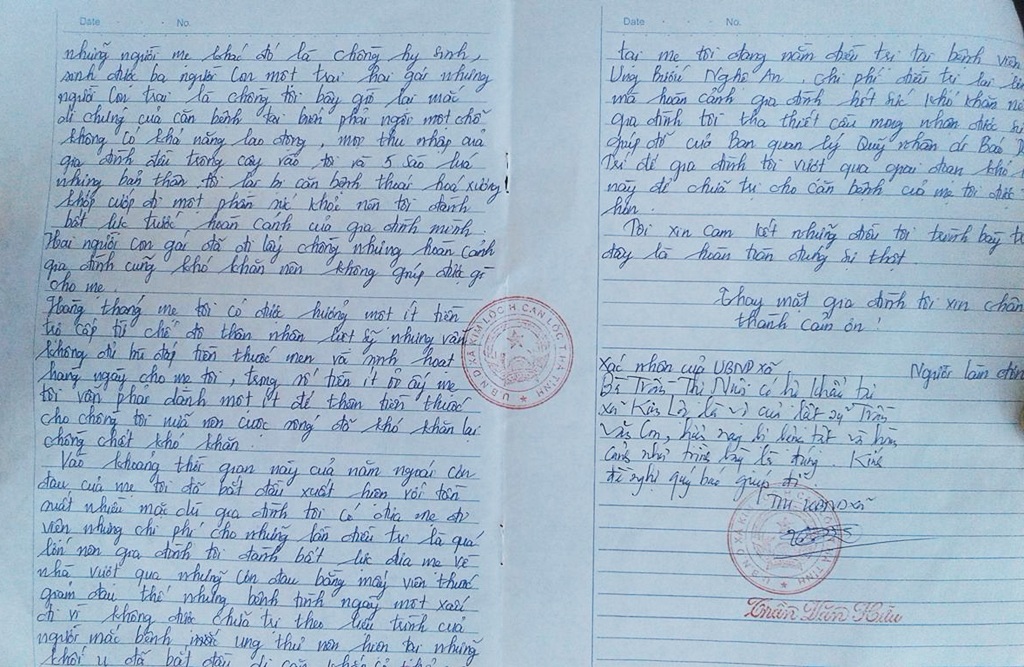 Date No.
những người mẹ khác đó là chồng hy sinh,
sinh được ba người con một trai hai gái nhưng
người con trai là chồng tôi bây giờ lại mắc
di chứng của căn bệnh tai biến phải ngồi một chỗ
không có khả năng lao động, mọi thu nhập của
gia đình đều trông cậy vào tôi và 5 sào lúa
nhưng bản thân tôi lại bị căn bệnh thoái hoá xương
khớp cướp đi một phần sức khoẻ nên tôi đành
bất lực trước hoàn cảnh của gia đình mình.
Hai người con gái đã đi lấy chồng nhưng hoàn cảnh
gia đình cũng khó khăn nên không giúp được gì
cho mẹ.
Hàng tháng mẹ tôi có được hưởng một ít tiền
trợ cấp từ chế độ thân nhân liệt sỹ nhưng vẫn
không đủ bù đắp tiền thuốc men và sinh hoạt
hàng ngày cho mẹ tôi, trong số tiền ít ỏi ấy mẹ
tôi vẫn phải dành một ít để thêm tiền thuốc
cho chồng tôi nữa nên cuộc sống đã khó khăn lại
chồng chất khó khăn.
Vào khoảng thời gian này của năm ngoái cơn
đau của mẹ tôi đã bắt đầu xuất hiện với tần
suất nhiều mặc dù gia đình tôi có đưa mẹ đi
viện nhưng chi phí cho những lần điều trị là quá
lớn nên gia đình tôi đành bất lực đưa mẹ về
nhà vượt qua những cơn đau bằng mấy viên thuốc
giảm đau thế nhưng bệnh tình ngày một xấu
đi vì không được chữa trị theo liệu trình của
người mắc bệnh ung thư nên hiện tại những
khối u đã bắt đầu di căn
Date No.
tại mẹ tôi đang nằm điều trị tại bệnh viện
Ung Bướu Nghệ An. chi phí điều trị lại
mà hoàn cảnh gia đình hết sức khó khăn
gia đình tôi tha thiết cầu mong nhận được
giúp đỡ của Ban quản lý Quỹ nhân ái Báo
Trí để gia đình tôi vượt qua giai đoạn khó
này để chữa trị cho căn bệnh của mẹ tôi được
hơn.
Tôi xin cam kết những điều tôi trình bày
đây là hoàn toàn đúng sự thật.
Thay mặt gia đình tôi xin chân
thành cảm ơn!
Xác nhận của UBND xã Người làm đơn
Bà Trần Thị có hộ khẩu tại
xã Kim Lộc là vợ của liệt sỹ Trần
Văn hiện nay bị bệnh tật và hoàn
cảnh như trình bày là đúng. Kính
đề nghị quý báo giúp đỡ.
TM UBND xã
U.B.N.D XÃ KIM LỘC H.CAN LỘC T.HÀ TĨNH
Trần Văn Hữu